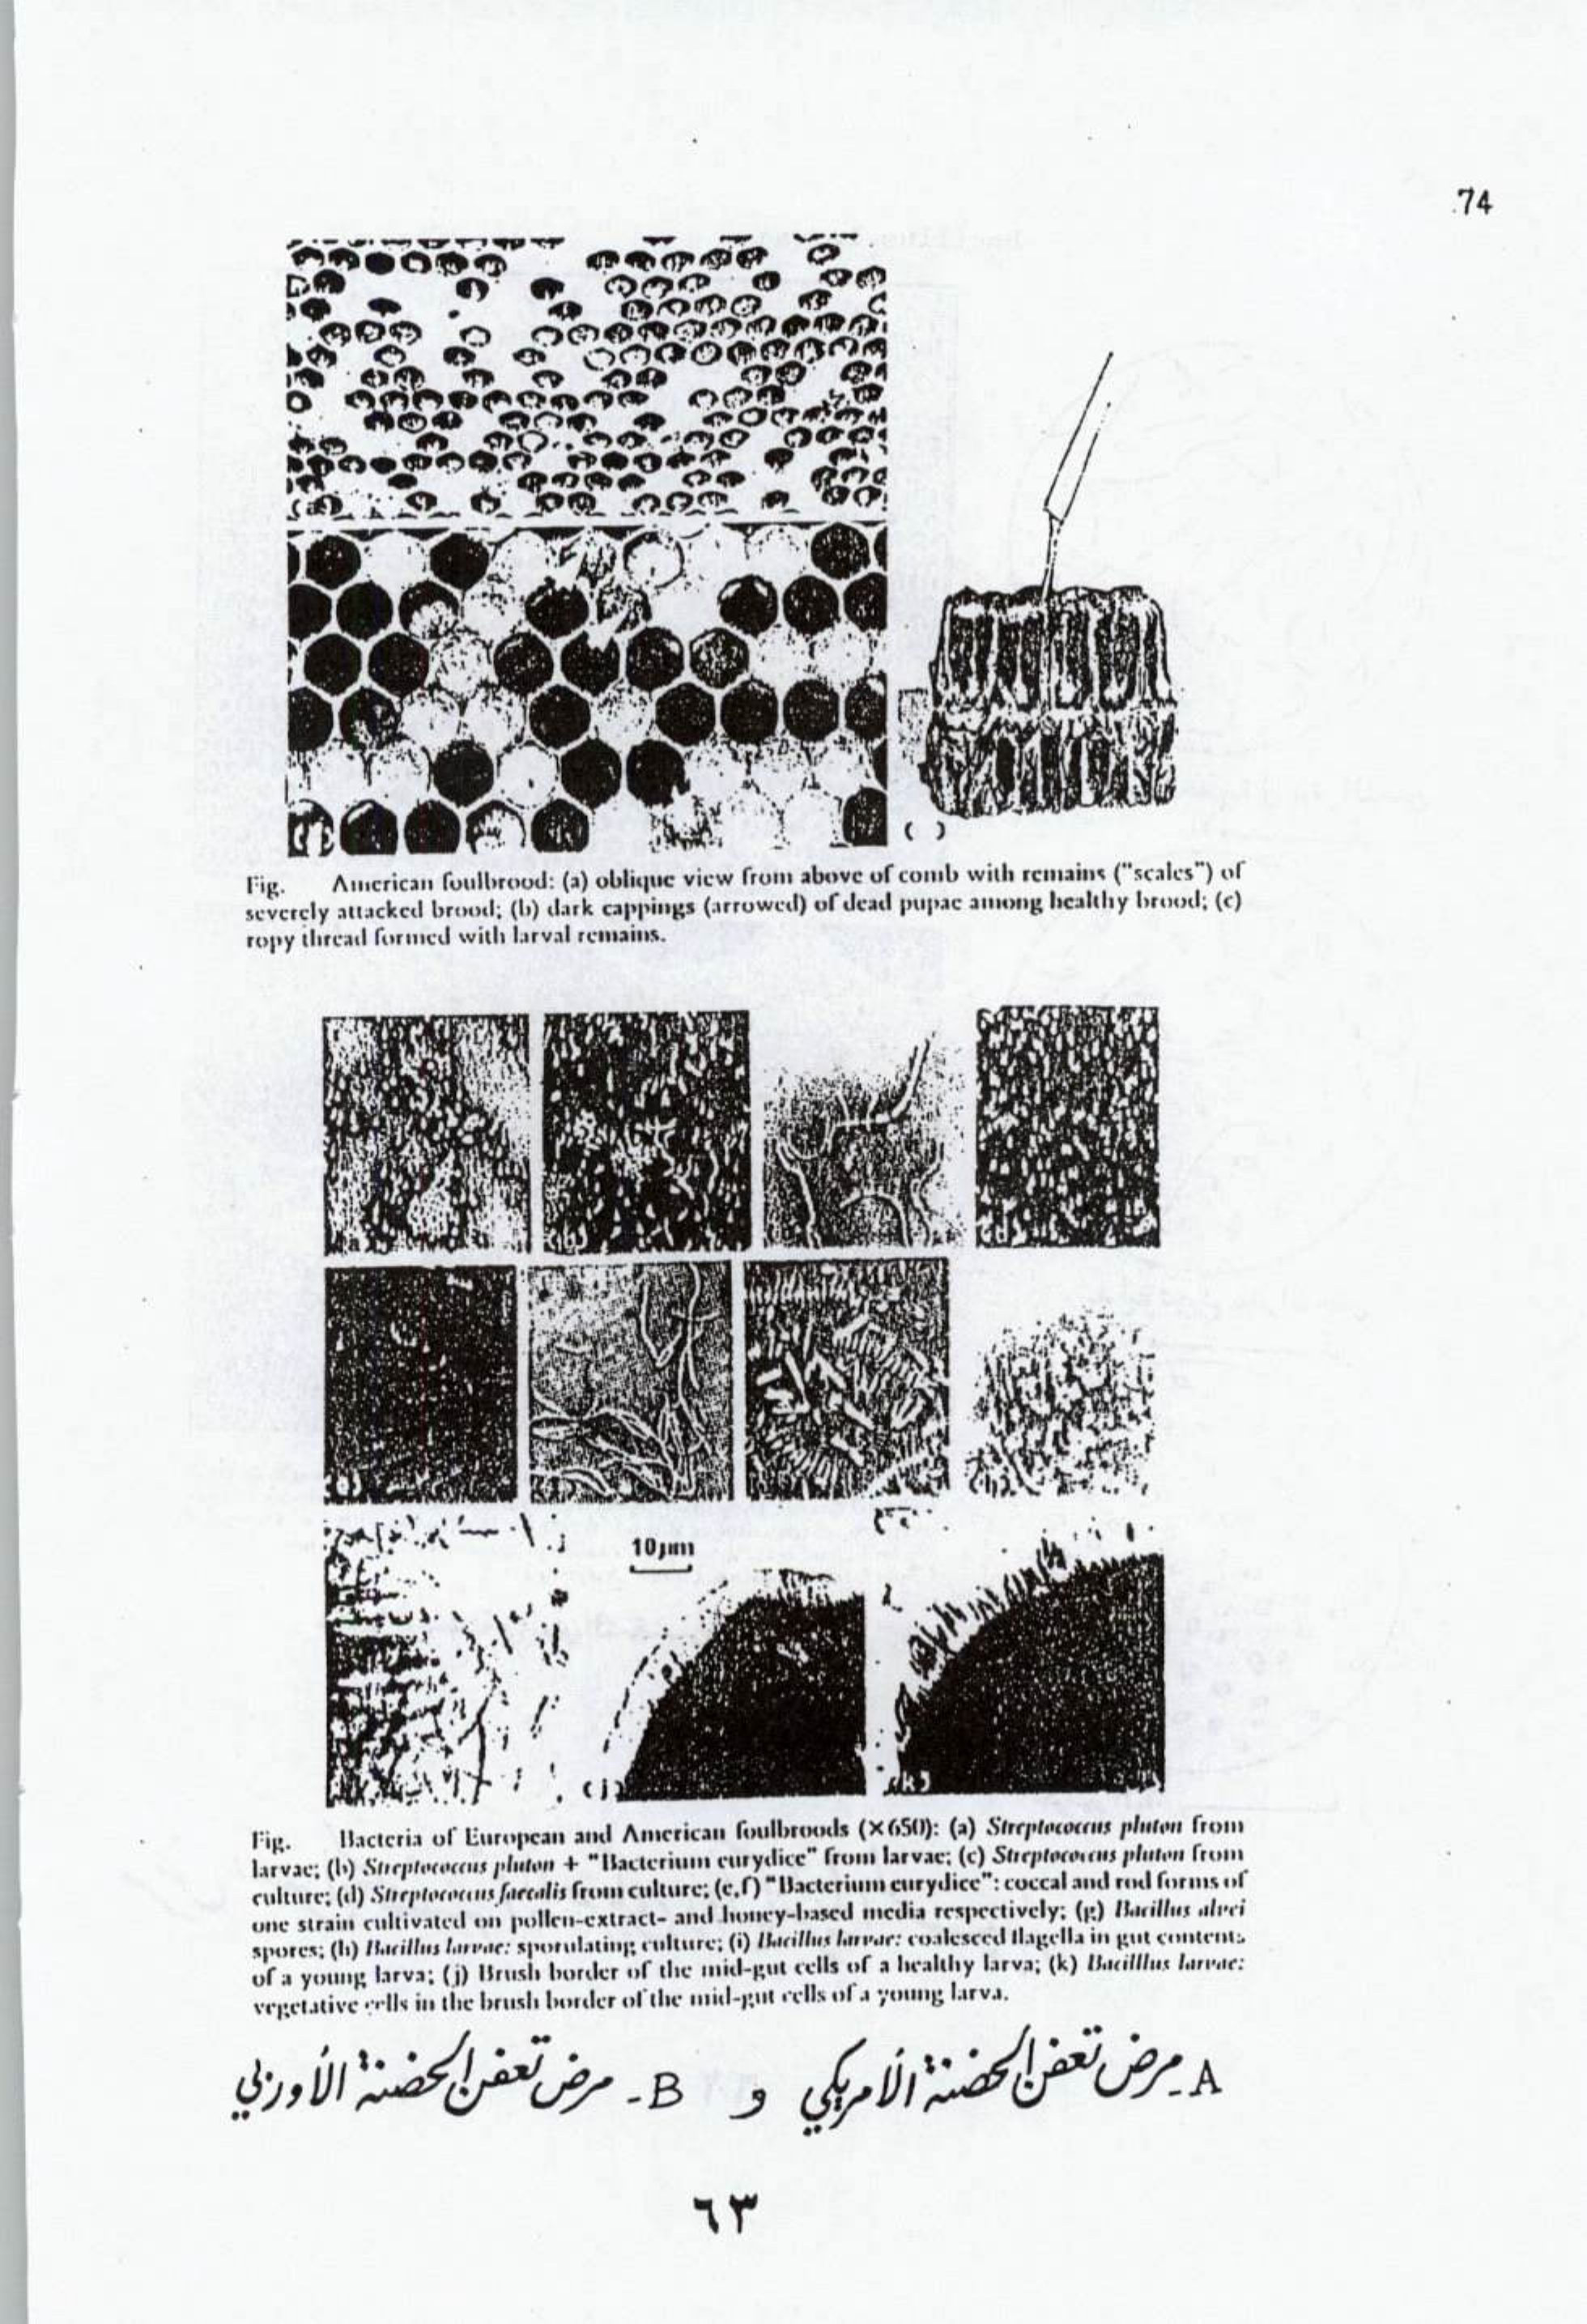 74
(a)
( )
Fig. American foulbrood: (a) oblique view from above of comb with remains ("scales") of
severely attacked brood; (b) dark cappings (arrowed) of dead pupae among healthy brood; (c)
ropy thread formed with larval remains.
(b)
(d)
(h)
10μm
(j)
(k)
Fig. Bacteria of European and American foulbroods (×650): (a) Streptococcus pluton from
larvae; (b) Streptococcus pluton + "Bacterium eurydice" from larvae; (c) Streptococcus pluton from
culture; (d) Streptococcus faecalis from culture; (e,f) "Bacterium eurydice": coccal and rod forms of
one strain cultivated on pollen-extract- and honey-based media respectively; (g) Bacillus alvei
spores; (h) Bacillus larvae: sporulating culture; (i) Bacillus larvae: coalesced flagella in gut contents
of a young larva; (j) Brush border of the mid-gut cells of a healthy larva; (k) Bacilllus larvae:
vegetative cells in the brush border of the mid-gut cells of a young larva.
A - مرض تعفن الحضنة الأمريكي و B - مرض تعفن الحضنة الأوربي
٦٣